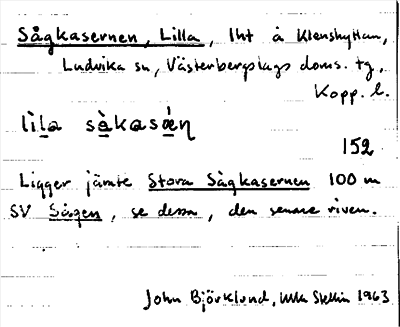 Sågkasernen, Lilla, lht å Klenshyttan,
Ludvika sn, Västerbergslags doms. tg,
Kopp. l.
lìla sàkasǽṇ
152
Ligger jämte Stora Sågkasernen 100 m
SV Sågen, se dessa, den senare riven.
John Björklund, 1963